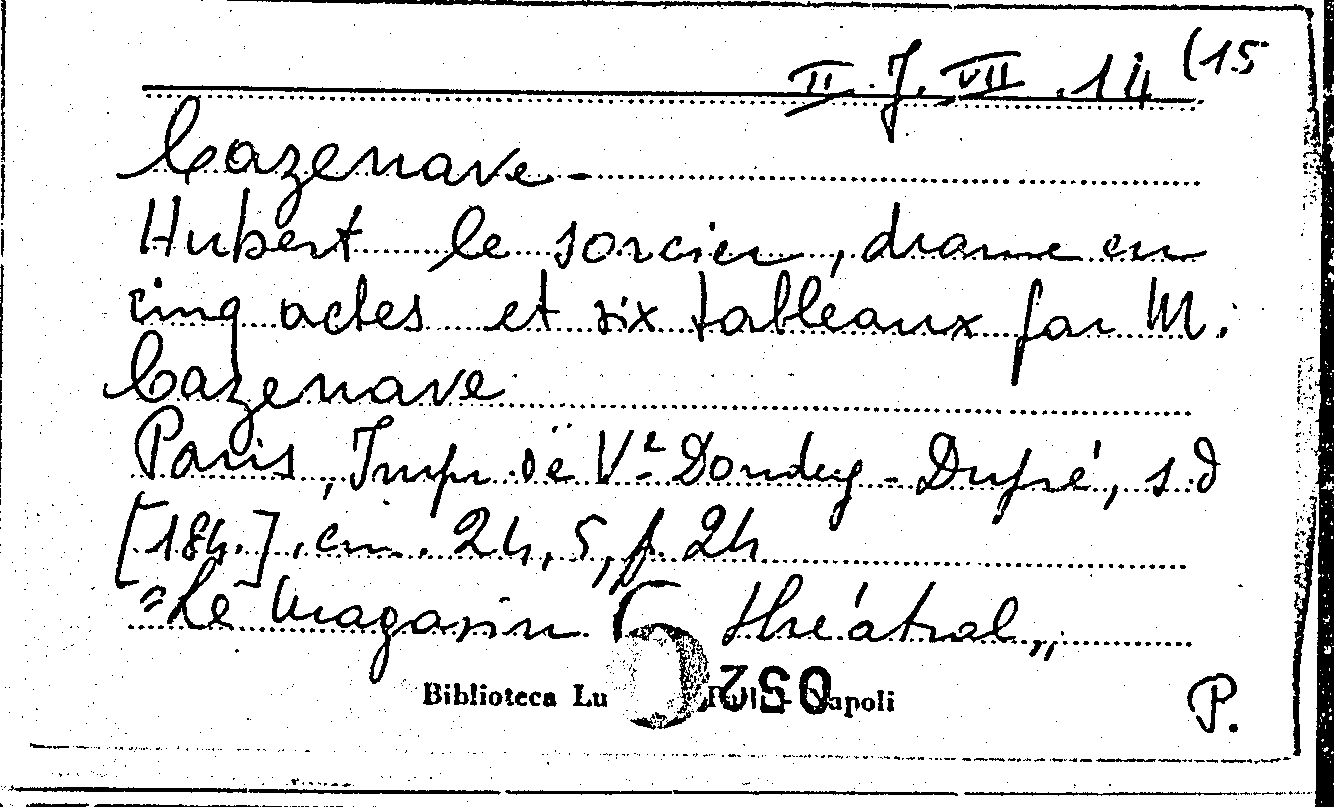 II. J. VII. 14 (15
Cazenave -
Hubert le sorcier, drame en
cinq actes et six tableaux par M.
Cazenave
Paris, Impr. de Vᵉ Dondey-Dupré, s.d
[184.]. cm. 24,5, p. 24
"Le Magasin théatral„
Biblioteca Lu
apoli
P.